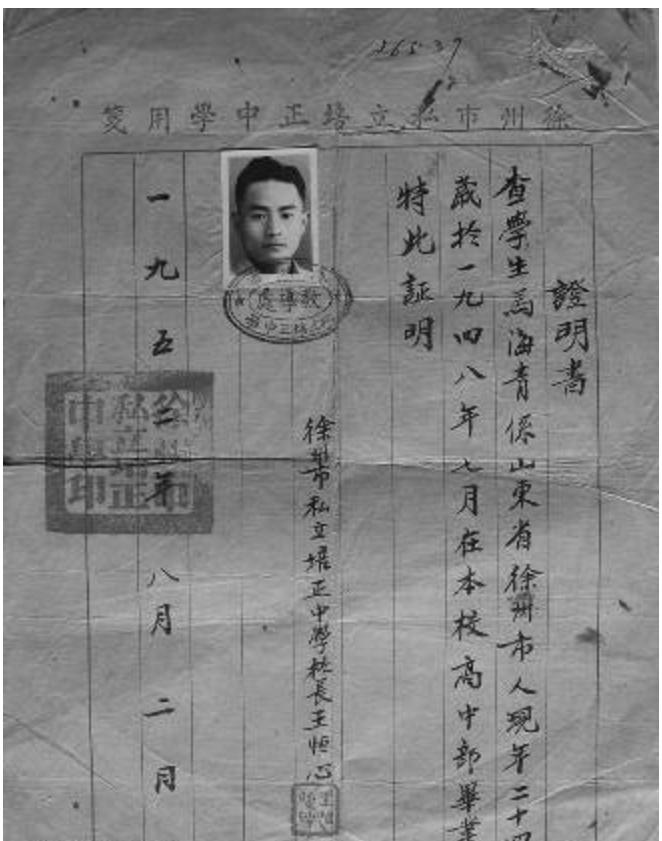 265.37
徐州市私立培正中學用箋
證明書
查學生馬海青係山東省徐州市人現年二十四
歲於一九四八年七月在本校高中部畢業
特此証明
徐州市私立培正中學校長王恒心
教導處
一九五二年八月二日
徐州市私立培正中學印